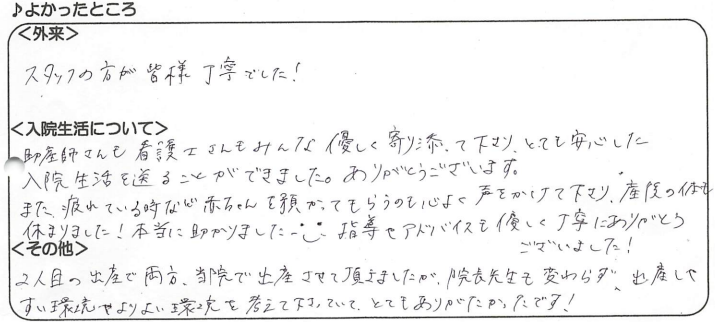 ♪よかったところ
<外来>
スタッフの方が皆様丁寧でした!
<入院生活について>
助産師さんも看護士さんもみんな優しく寄り添って下さり、とても安心した
入院生活を送ることができました。ありがとうございます。
また、疲れている時など赤ちゃんを預かってもらうのも心よく声をかけて下さり、産後の体も
休まりました!本当に助かりました 指導やアドバイスも優しく丁寧にありがとう
ございました!
<その他>
2人目の出産で両方、当院で出産させて頂きましたが、院長先生も変わらず、出産しや
すい環境やよりよい環境を考えて下さっていて、とてもありがたかったです!